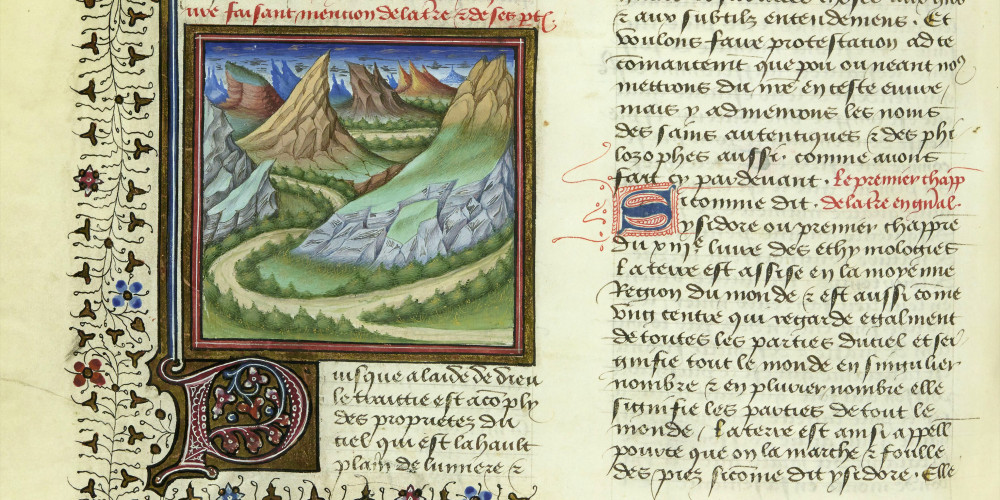 uve faisant mention de la tre ⁊ de ses pt͛.
Puisque a laide de dieu
le traittie est acoply
des proprietez du
ciel qui est la hault
plain de lumiere ⁊
⁊ aux subtilz entendemens. Et
voulons faire protestation ad ce
comancemt que pou ou neant nous
mettrons du nre en ceste euure,
mais y admenrons les noms
des sains autentiques ⁊ des phi
lozophes aussi. comme auons
fait cy par deuant. le premier chapp
Si comme dit. de la tre en gnal.
ysidore ou premier chappre
du xiiiie liure des ethymologies
La terre est assise en la moyenne
Region du monde ⁊ est aussi come
vng centre qui regarde egalment
de toutes les parties du ciel et sei
gnifie tout le monde en singulier
nombre ⁊ en plurier nombre elle
signifie les parties de tout le
monde, La terre est ainsi appell
pource que on la marche ⁊ foulle
des piez sicome dit ysidore. Elle